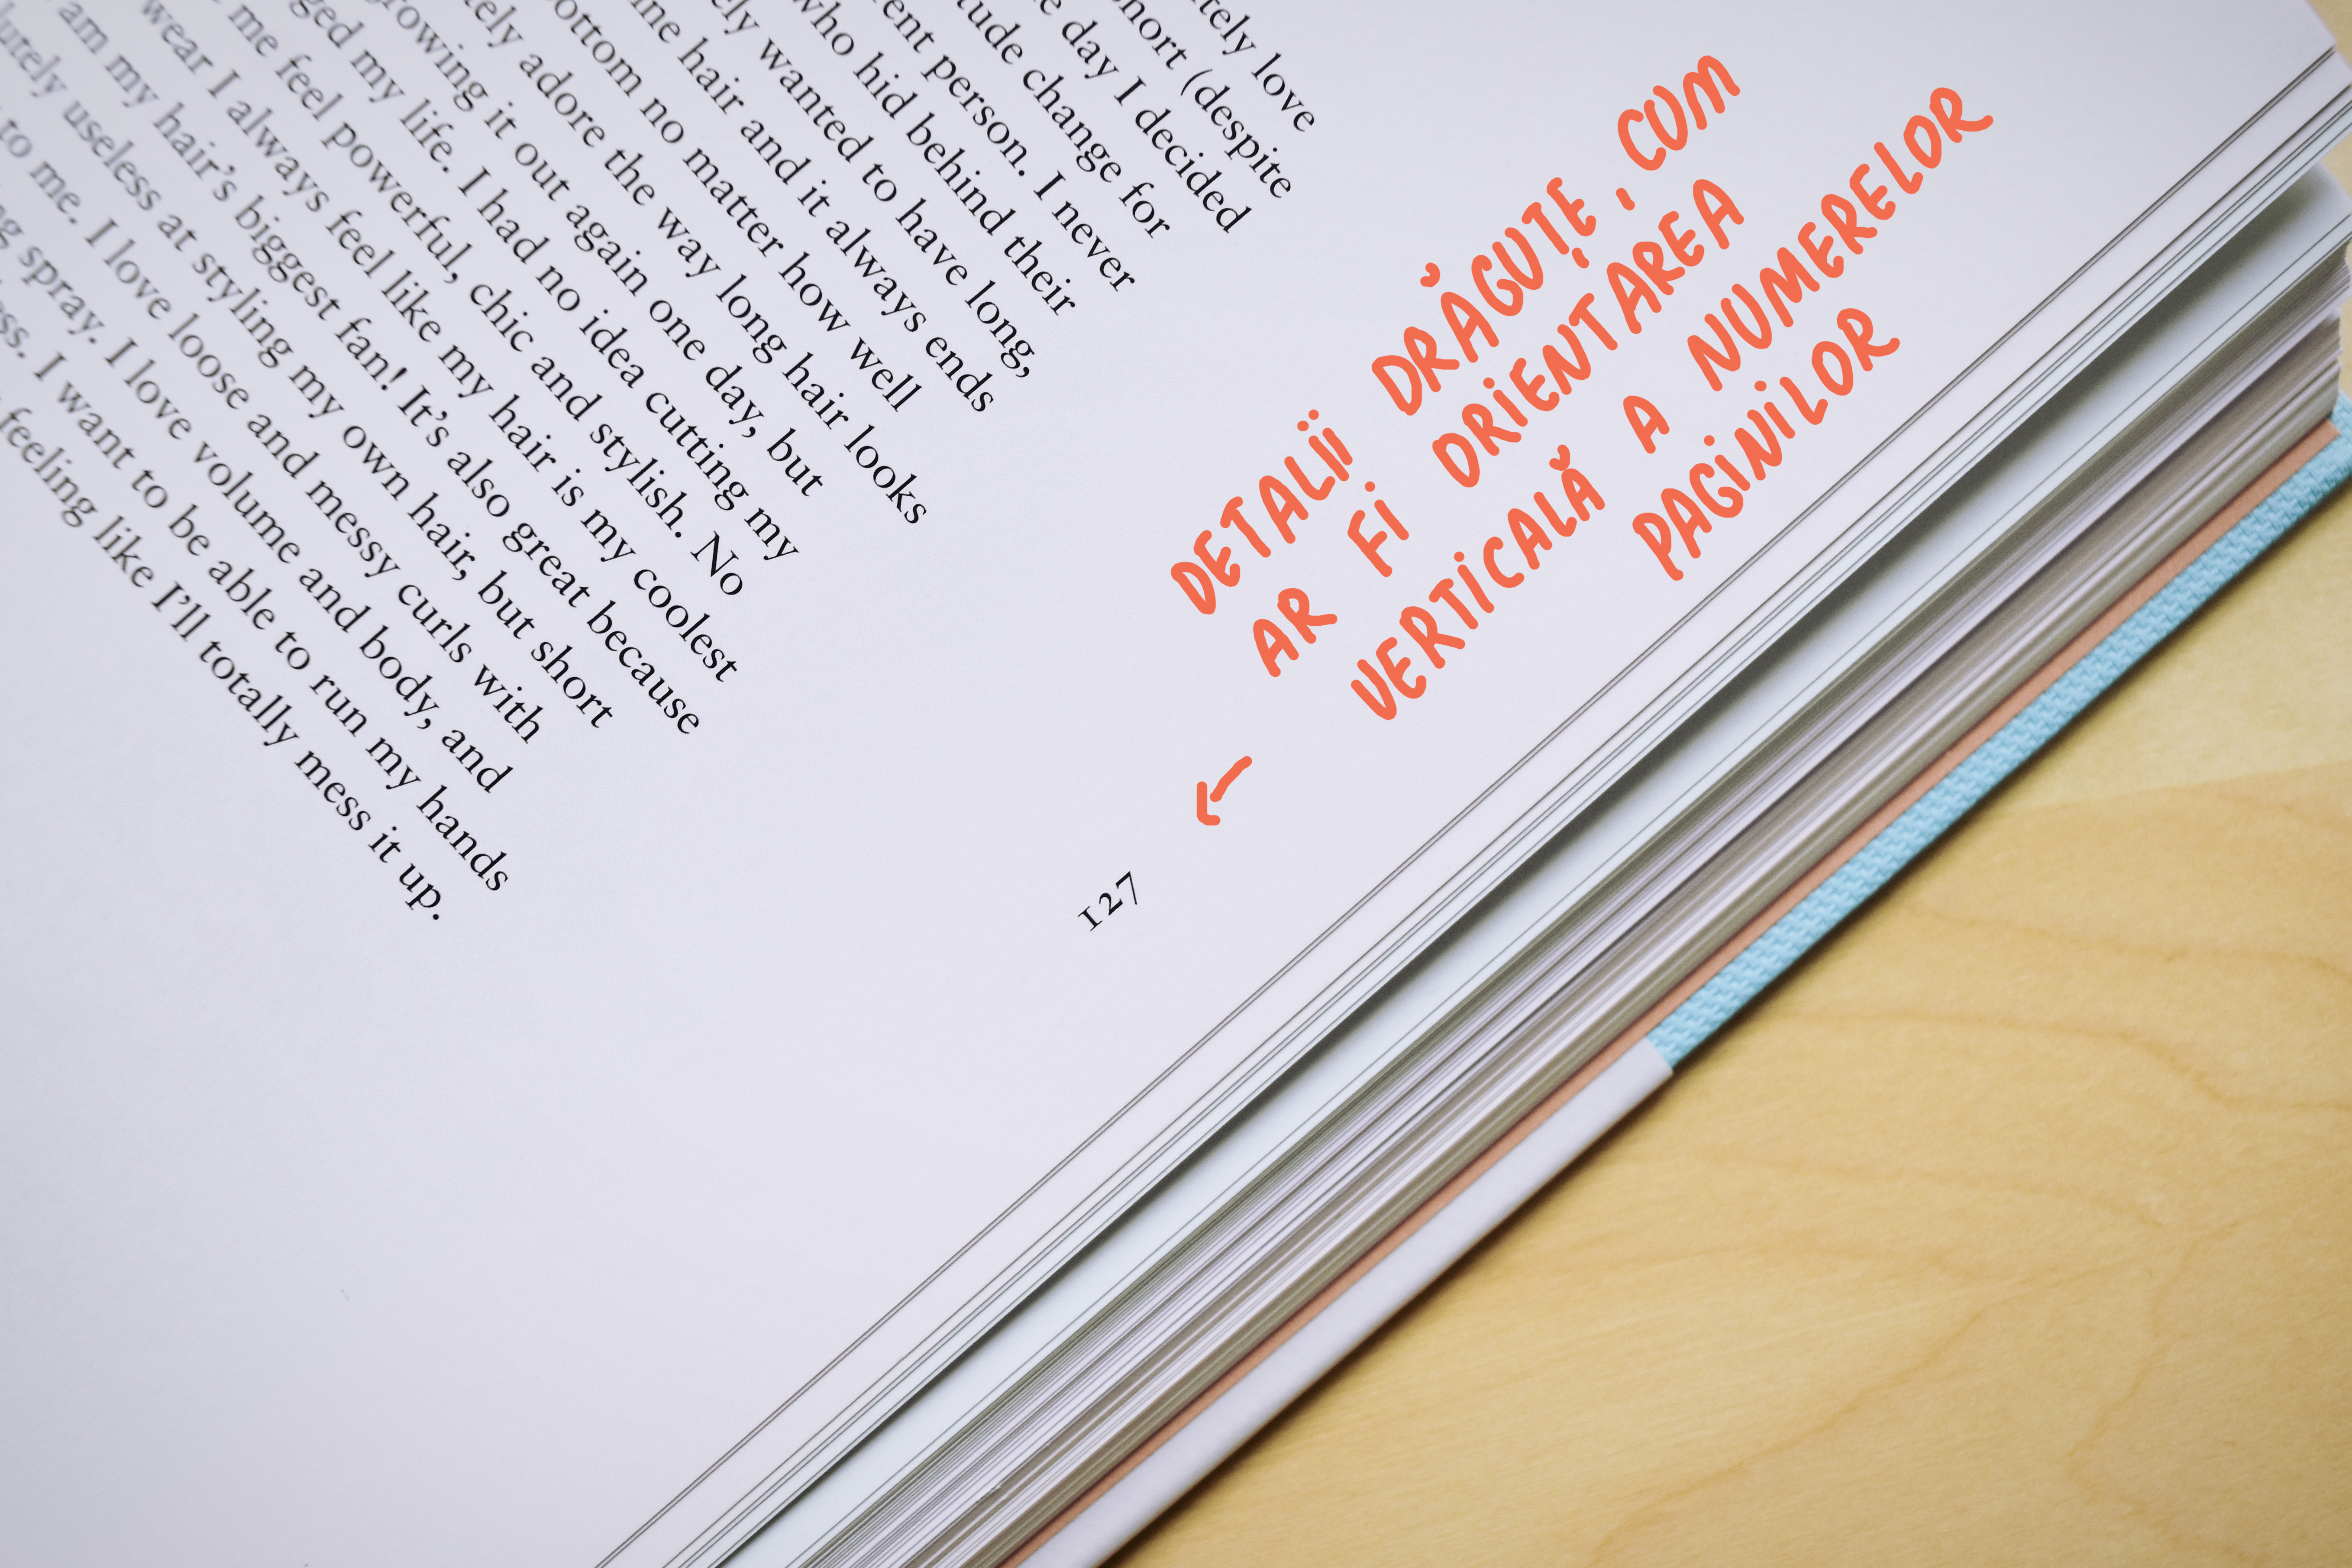 love
short (despite
day I decided
change for
person. I never
who hid behind their
wanted to have long,
hair and it always ends
no matter how well
adore the way long hair looks
growing it out again one day, but
my life. I had no idea cutting my
me feel powerful, chic and stylish. No
wear I always feel like my hair is my coolest
am my hair’s biggest fan! It’s also great because
useless at styling my own hair, but short
to me. I love loose and messy curls with
spray. I love volume and body, and
I want to be able to run my hands
feeling like I’ll totally mess it up.
127
DETALII DRĂGUȚE, CUM
AR FI ORIENTAREA
VERTICALĂ A NUMERELOR
PAGINILOR